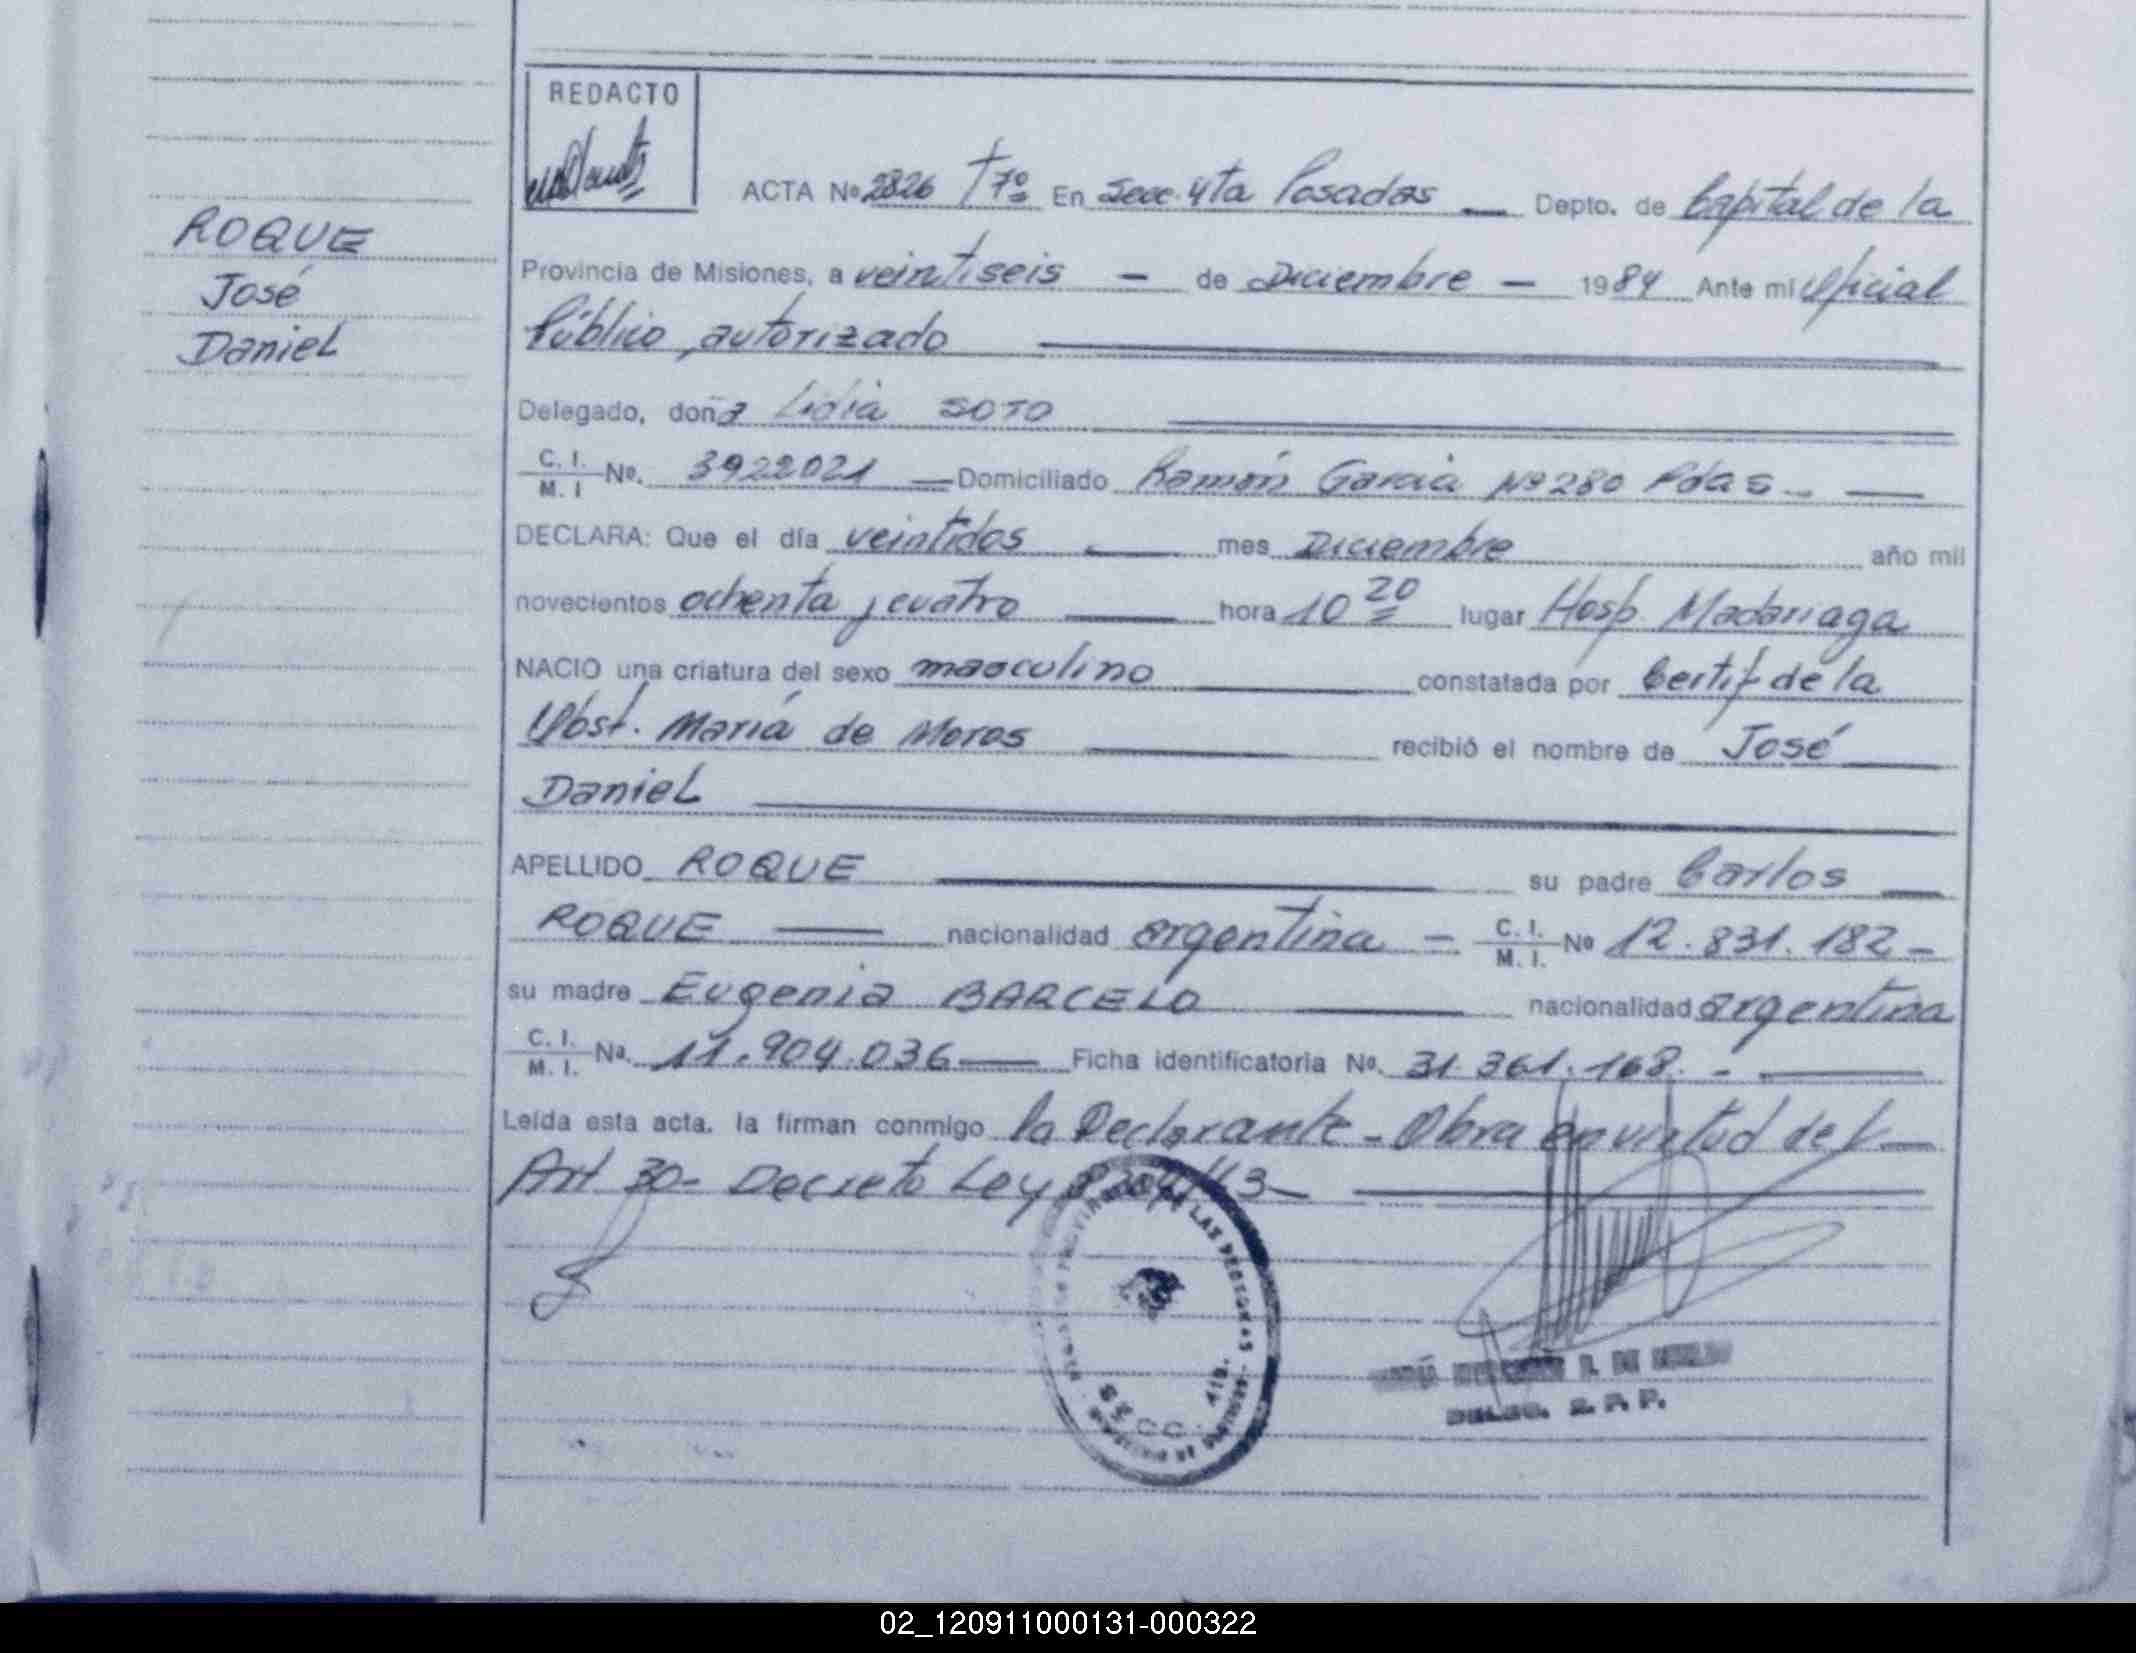 REDACTO
ACTA Nº 2826 Tº 7º En Secc. 4ta Posadas — Depto. de Capital de la
ROQUE
José
Daniel
Provincia de Misiones, a veintiseis — de Diciembre — 1984 Ante mi Oficial
Público autorizado
Delegado, doña Lidia SOTO
C. I. M. I Nº. 3922021 — Domiciliado Ramón Garcia Nº 280 Pdas. —
DECLARA: Que el día veintidos — mes Diciembre año mil
novecientos ochenta y cuatro — hora 10 20 lugar Hosp. Madariaga
NACIO una criatura del sexo masculino — constatada por Certif de la
Obst. María de Moros — recibió el nombre de José
Daniel
APELLIDO ROQUE — su padre Carlos —
ROQUE — nacionalidad argentina — C. I. M. I. Nº 12.831.182 -
su madre Eugenia BARCELO — nacionalidad argentina
C. I. M. I. Nº. 11.904.036 — Ficha identificatoria Nº. 31.361.168. - —
Leída esta acta, la firman conmigo la Declarante - Obra en virtud del —
Art. 30 - Decreto Ley
LAS PERSONAS
SECC. 4ta.
02_120911000131-000322